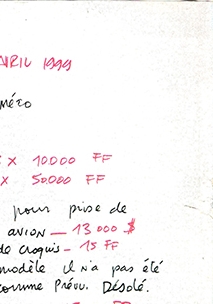 AVRIL 1999
X 10000 FF
X 50.000 FF
pour prise de
avion — 13 000 $
de croquis – 15 FF
modèle il n'a pas été
comme Prévu. Désolé.